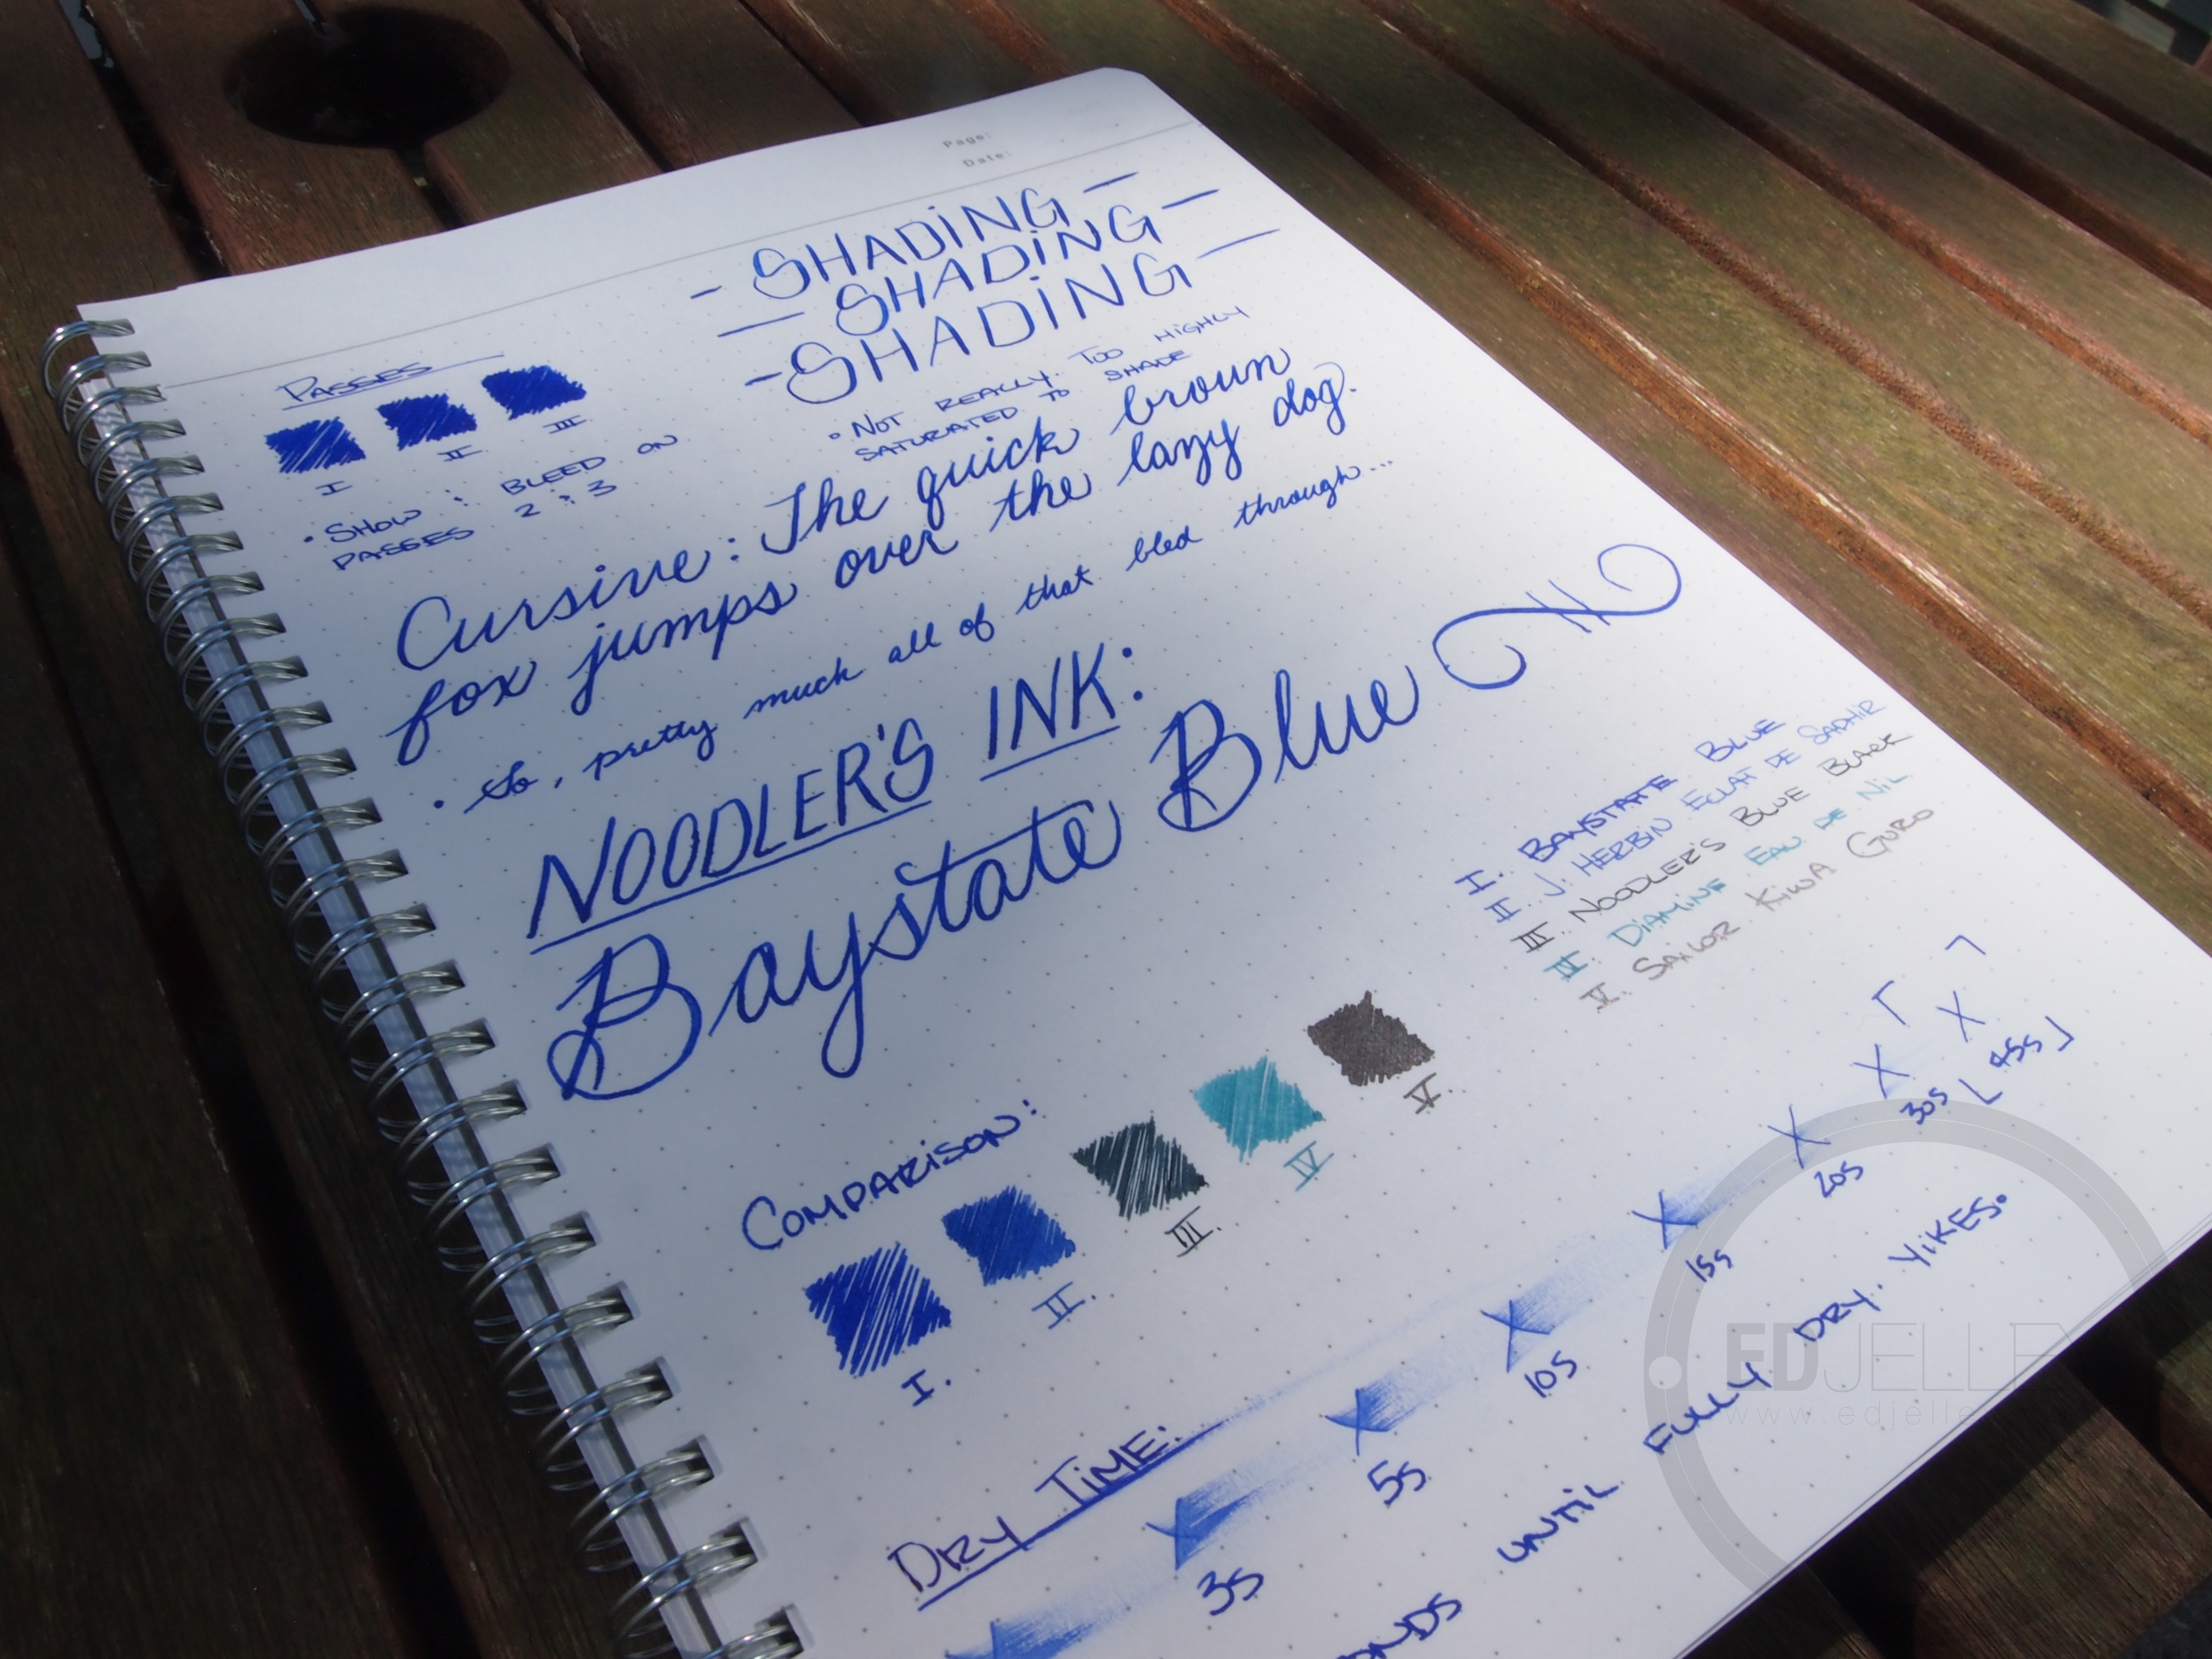 Page:
Date:
- SHADING -
- SHADING -
- SHADING -
• NOT REALLY. TOO HIGHLY
SATURATED TO SHADE
PASSES
I II III
• SHOW & BLEED ON
PASSES 2 & 3
Cursive: The quick brown
fox jumps over the lazy dog.
• So, pretty much all of that bled through...
NOODLER'S INK:
Baystate Blue
I. BAYSTATE BLUE
II. J. HERBIN ECLAT DE SAPHIR
III. NOODLER'S BLUE BLACK
IV. DIAMINE EAU DE NIL
V. SAILOR KIWA GURO
COMPARISON:
I. II. III. IV V.
DRY TIME:
3s 5s 10s 15s 20s 30s [45s]
UNTIL FULLY DRY. YIKES.
EDJELLEY
www.edjelle